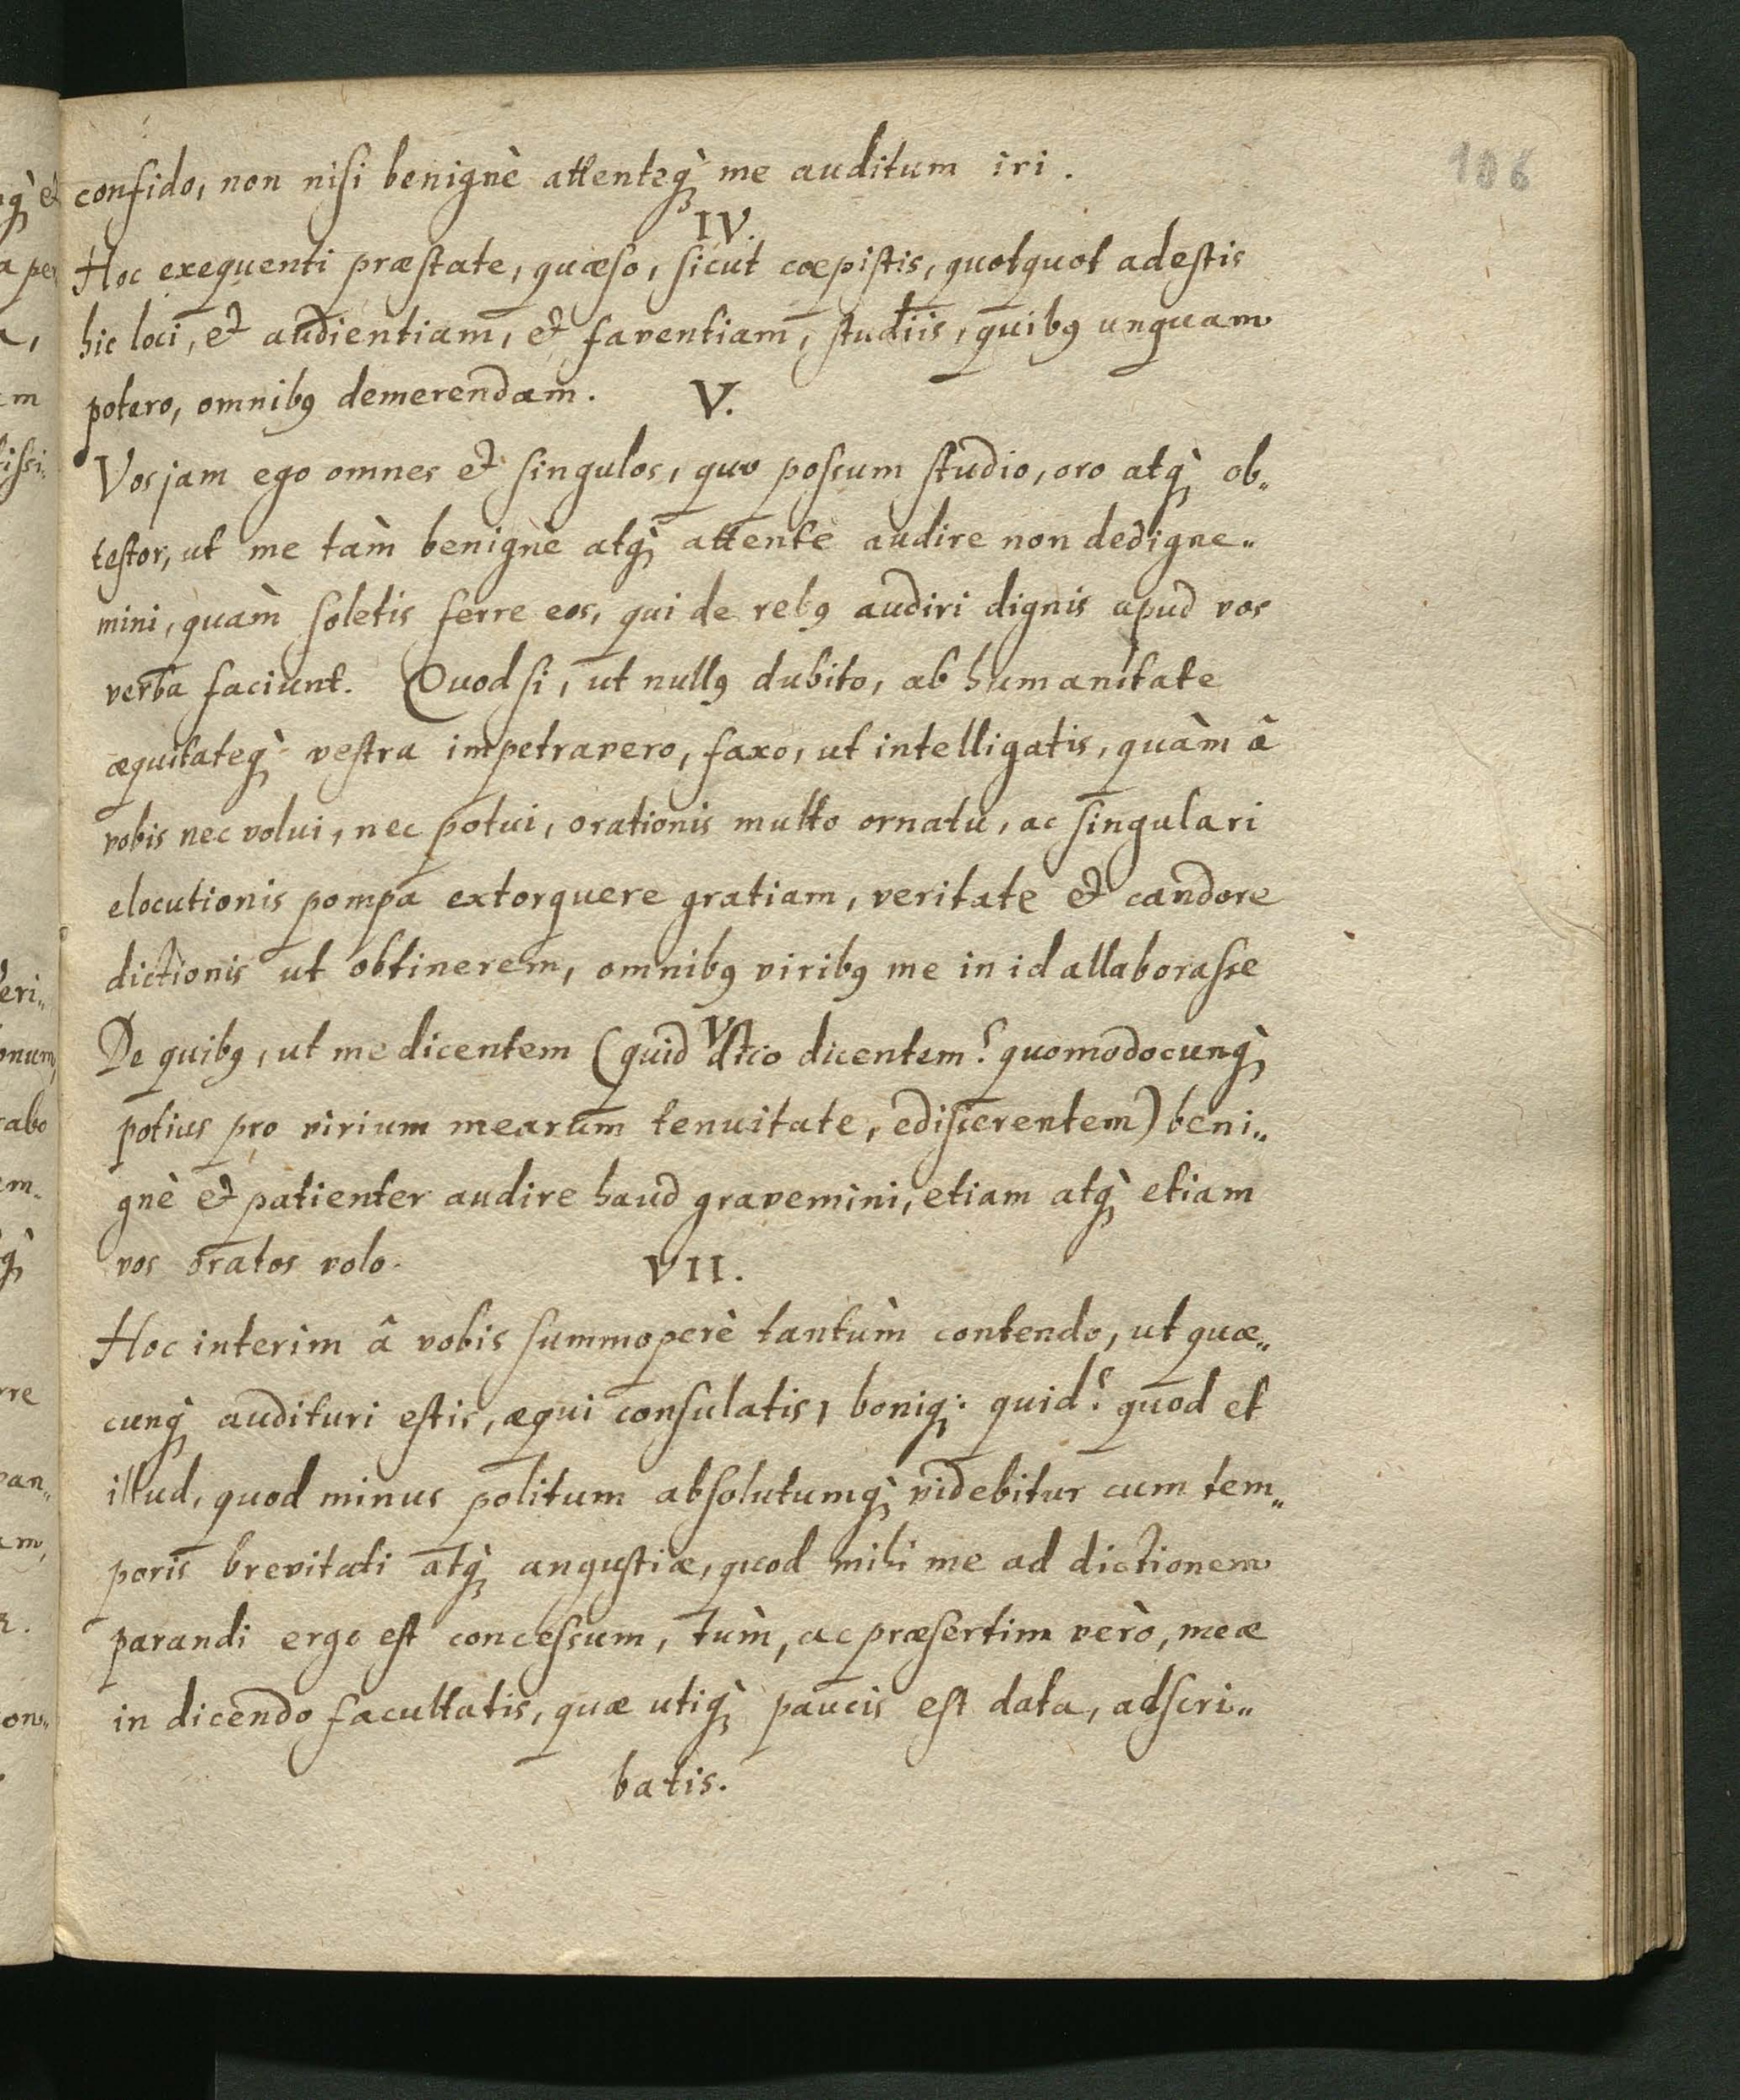 106
confido, non nisi benignè attenteq̀; me auditum iri.
IV.
Hoc exequenti præstate, quæso, sicut cœpistis, quotquot adestis
hic loci, et audientiam, et faventiam, studiis, quibꝰ unquam
potero, omnibꝰ demerendam. V.
Vos jam ego omnes et singulos, quo possum studio, oro atq̀; ob„
testor, ut me tàm benignè atq̀; attentè audire non dedigne„
mini, quàm soletis ferre eos, qui de rebꝰ audiri dignis apud vos
verba faciunt. Quod si, ut nullꝰ dubito, ab humanitate
æquitateq̀; vestra impetravero, faxo, ut intelligatis, quàm â
vobis nec volui, nec potui, orationis multo ornatu, ac singulari
elocutionis pompa extorquere gratiam, veritate et candore
dictionis ut obtinerem, omnibꝰ viribꝰ me in id allaborasse
De quibꝰ, ut me dicentem (quid dico dicentem? quomodocunq̀;
potius pro virium mearum tenuitate, edisserentem) beni„
gnè et patienter audire haud gravemini, etiam atq̀; etiam
vos oratos volo. VII.
Hoc interim â vobis summoperè tantùm contendo, ut quæ„
cunq̀; audituri estis, æqui consulatis, boniq;. quid? quod et
illud, quod minus politum absolutumq̀; videbitur cum tem„
poris brevitati atq̀; angustiæ, quod mihi me ad dictionem
parandi ergo est concessum, tùm, ac præsertim verò, meæ
in dicendo facultatis, quæ utiq̀; paucis est data, adscri„
batis.